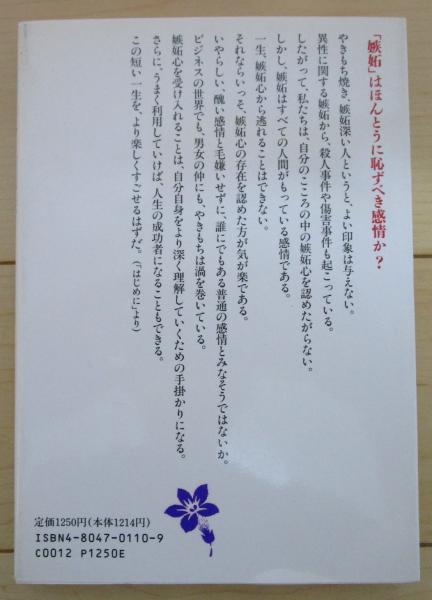 「嫉妬」はほんとうに恥ずべき感情か?
やきもち焼き、嫉妬深い人というと、よい印象は与えない。
異性に関する嫉妬から、殺人事件や傷害事件も起こっている。
したがって、私たちは、自分のこころの中の嫉妬心を認めたがらない。
しかし、嫉妬はすべての人間がもっている感情である。
一生、嫉妬心から逃れることはできない。
それならいっそ、嫉妬心の存在を認めた方が気が楽である。
いやらしい、醜い感情と毛嫌いせずに、誰にでもある普通の感情とみなそうではないか。
ビジネスの世界でも、男女の仲にも、やきもちは渦を巻いている。
嫉妬心を受け入れることは、自分自身をより深く理解していくための手掛かりになる。
さらに、うまく利用していけば、人生の成功者になることもできる。
この短い一生を、より楽しくすごせるはずだ。(「はじめに」より)
定価1250円(本体1214円)
ISBN4-8047-0110-9
C0012 P1250E